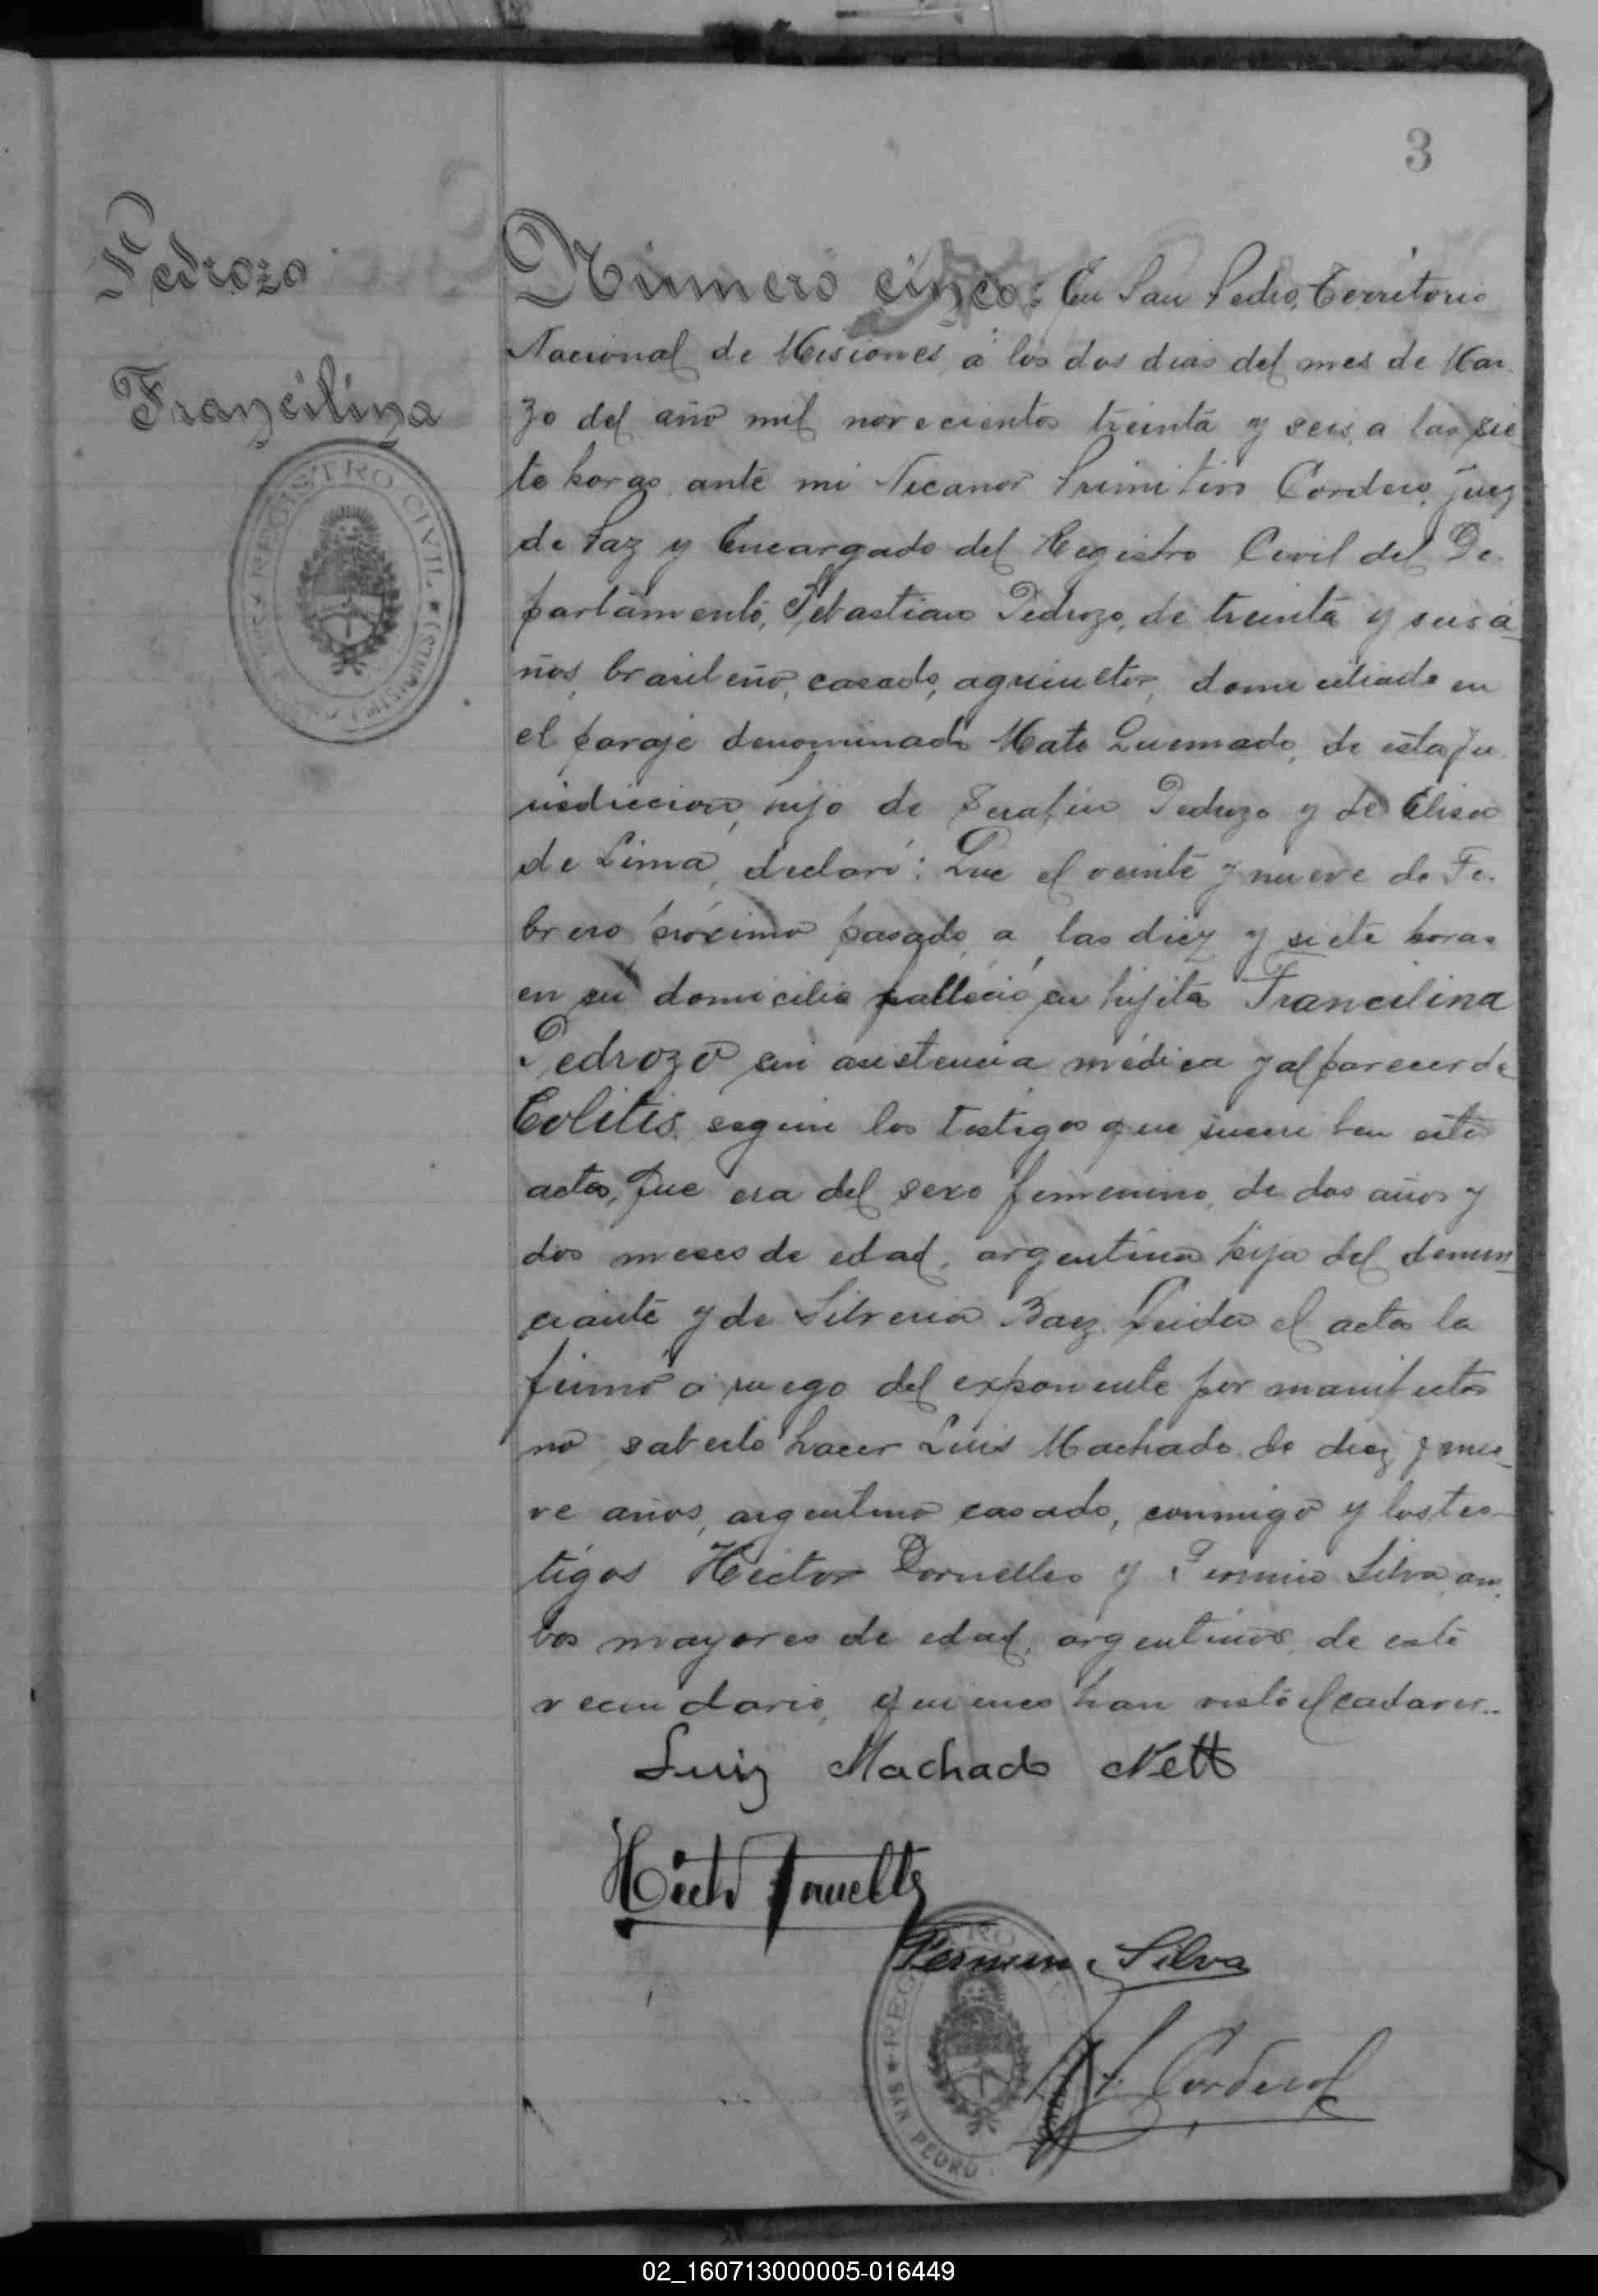 3
Pedrozo
Francilina
REGISTRO CIVIL
Número cinco: En San Pedro, Territorio
Nacional de Misiones, á los dos dias del mes de Mar-
zo del año mil novecientos treinta y seis, a las sie
te horas, ante mi Nicanor Primitivo Cordero, Juez
de Paz y Encargado del Registro Civil del De-
partamento, Sebastian Pedrozo, de treinta y seis a-
ños, brasileño, casado, agricultor, domiciliado en
el paraje denominado Mato Quemado, de esta Ju
risdiccion, hijo de Serafin Pedrozo y de Elisa
de Lima, declaró: Que el veinte y nueve de Fe-
brero próximo pasado, a las diez y siete horas
en su domicilio falleció su hijita Francilina
Pedrozo sin asistencia médica y al parecer de
Colitis, segun los testigos que suscriben esta
acta, Que era del sexo femenino, de dos años y
dos meses de edad, argentina hija del denun-
ciante y de Silveria Baez. Leida el acta la
firmó a ruego del exponente por manifestar
no saberlo hacer Luis Machado de diez y nue-
ve años, argentino casado, conmigo y los tes-
tigos Héctor Dornelles y Fermin Silva, am-
bos mayores de edad, argentinos, de este
vecindario, quienes han visto el cadaver..
Luiz Machado Nett
Héctor Dornelles
Fermin Silva
REGISTRO
SAN PEDRO
Cordero
02_160713000005-016449